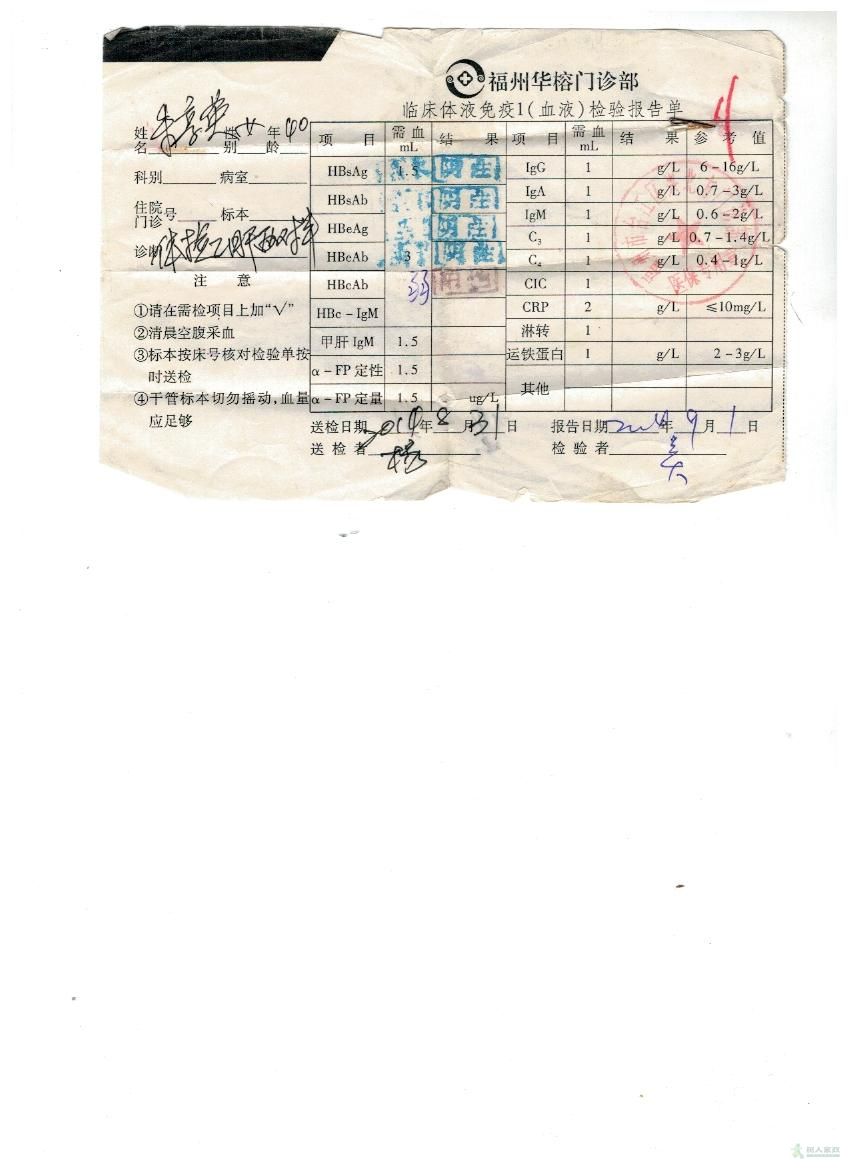 福州华榕门诊部
临床体液免疫1(血液)检验报告单
姓名 性别 女 年龄 40
科别 病室
住院门诊号 标本
诊断
注 意
①请在需检项目上加“√”
②清晨空腹采血
③标本按床号核对检验单按时送检
④干管标本切勿摇动,血量应足够
项 目 需血 mL 结 果 项 目 需血 mL 结 果 参考值
HBsAg 1.5 阴性 IgG 1 g/L 6-16g/L
HBsAb 阴性 IgA 1 g/L 0.7-3g/L
HBeAg 阴性 IgM 1 g/L 0.6-2g/L
HBeAb 3 阴性 C₃ 1 g/L 0.7-1.4g/L
HBcAb 弱 C₄ 1 g/L 0.4-1g/L
CIC 1
HBc-IgM CRP 2 g/L ≤10mg/L
甲肝 IgM 1.5 淋转 1
α-FP 定性 1.5 运铁蛋白 1 g/L 2-3g/L
α-FP 定量 1.5 ug/L 其他
送检日期 2014年8月31日 报告日期 2014年9月1日
送检者 检验者
树人家政